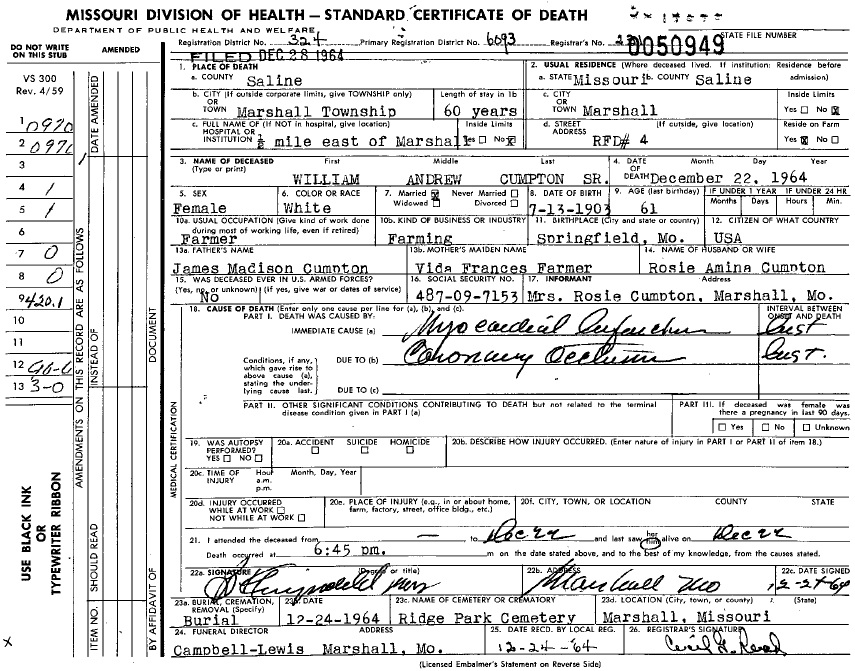 MISSOURI DIVISION OF HEALTH — STANDARD CERTIFICATE OF DEATH
DEPARTMENT OF PUBLIC HEALTH AND WELFARE
STATE FILE NUMBER
Registration District No. 324 Primary Registration District No. 6093 Registrar's No.
0050949
FILED DEC 28 1964
DO NOT WRITE ON THIS STUB
AMENDED
VS 300
Rev. 4/59
1 0970
2
3
4 1
5 1
6
7 0
8 0
9 420.1
10
11
12
13 3-0
USE BLACK INK
OR
TYPEWRITER RIBBON
DATE AMENDED
AMENDMENTS ON THIS RECORD ARE AS FOLLOWS
INSTEAD OF
SHOULD READ
ITEM NO.
DOCUMENT
BY AFFIDAVIT OF
MEDICAL CERTIFICATION
1. PLACE OF DEATH
a. COUNTY Saline
2. USUAL RESIDENCE (Where deceased lived. If institution: Residence before admission)
a. STATE Missouri b. COUNTY Saline
b. CITY (If outside corporate limits, give TOWNSHIP only) OR TOWN Marshall Township
Length of stay in 1b 60 years
c. CITY OR TOWN Marshall
Inside Limits Yes ☐ No ☒
c. FULL NAME OF (If NOT in hospital, give location) HOSPITAL OR INSTITUTION ½ mile east of Marshall
Inside Limits Yes ☐ No ☒
d. STREET ADDRESS (If outside, give location) RFD# 4
Reside on Farm Yes ☒ No ☐
3. NAME OF DECEASED (Type or print) First Middle Last
WILLIAM ANDREW CUMPTON SR.
4. DATE OF DEATH Month Day Year
December 22, 1964
5. SEX Female
6. COLOR OR RACE White
7. Married ☒ Never Married ☐ Widowed ☐ Divorced ☐
8. DATE OF BIRTH 7-13-1903
9. AGE (last birthday) 61
IF UNDER 1 YEAR Months Days
IF UNDER 24 HR Hours Min.
10a. USUAL OCCUPATION (Give kind of work done during most of working life, even if retired) Farmer
10b. KIND OF BUSINESS OR INDUSTRY Farming
11. BIRTHPLACE (City and state or country) Springfield, Mo.
12. CITIZEN OF WHAT COUNTRY USA
13a. FATHER'S NAME James Madison Cumpton
13b. MOTHER'S MAIDEN NAME Vida Frances Farmer
14. NAME OF HUSBAND OR WIFE Rosie Amina Cumpton
15. WAS DECEASED EVER IN U.S. ARMED FORCES? (Yes, no, or unknown) (If yes, give war or dates of service) No
16. SOCIAL SECURITY NO. 487-09-7153
17. INFORMANT Address
Mrs. Rosie Cumpton, Marshall, Mo.
18. CAUSE OF DEATH (Enter only one cause per line for (a), (b), and (c).
PART I. DEATH WAS CAUSED BY:
INTERVAL BETWEEN ONSET AND DEATH
IMMEDIATE CAUSE (a) Myocardial Infarction Inst
Conditions, if any, which gave rise to above cause (a), stating the underlying cause last.
DUE TO (b) Coronary Occlusion Inst.
DUE TO (c)
PART II. OTHER SIGNIFICANT CONDITIONS CONTRIBUTING TO DEATH but not related to the terminal disease condition given in PART I (a)
PART III. If deceased was female was there a pregnancy in last 90 days.
☐ Yes ☐ No ☐ Unknown
19. WAS AUTOPSY PERFORMED? YES ☐ NO ☐
20a. ACCIDENT ☐ SUICIDE ☐ HOMICIDE ☐
20b. DESCRIBE HOW INJURY OCCURRED. (Enter nature of injury in PART I or PART II of item 18.)
20c. TIME OF INJURY Hour a.m. p.m. Month, Day, Year
20d. INJURY OCCURRED WHILE AT WORK ☐ NOT WHILE AT WORK ☐
20e. PLACE OF INJURY (e.g., in or about home, farm, factory, street, office bldg., etc.)
20f. CITY, TOWN, OR LOCATION COUNTY STATE
21. I attended the deceased from — to Dec 22 and last saw her him alive on Dec 22
Death occurred at 6:45 pm. m on the date stated above, and to the best of my knowledge, from the causes stated.
22a. SIGNATURE (Degree or title)
22b. ADDRESS Marshall Mo
22c. DATE SIGNED 12-24-64
23a. BURIAL, CREMATION, REMOVAL (Specify) Burial
23b. DATE 12-24-1964
23c. NAME OF CEMETERY OR CREMATORY Ridge Park Cemetery
23d. LOCATION (City, town, or county) (State) Marshall, Missouri
24. FUNERAL DIRECTOR ADDRESS
Campbell-Lewis Marshall, Mo.
25. DATE RECD. BY LOCAL REG. 12-24-64
26. REGISTRAR'S SIGNATURE Cecil G. Read
(Licensed Embalmer's Statement on Reverse Side)